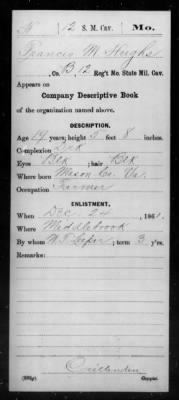 H 12 S. M. Cav. Mo.
Francis M. Hughs
, Co. B, 12 Reg't Mo. State Mil. Cav.
Appears on
Company Descriptive Book
of the organization named above.
DESCRIPTION.
Age 19 years; height 5 feet 8 inches.
Complexion Drk
Eyes Blk ; hair Blk
Where born Mason Co. Va.
Occupation Farmer
ENLISTMENT.
When Dec. 24, 1861.
Where Middlebrook
By whom W. T. ; term 3 y'rs.
Remarks:
Crittenden
Copyist.